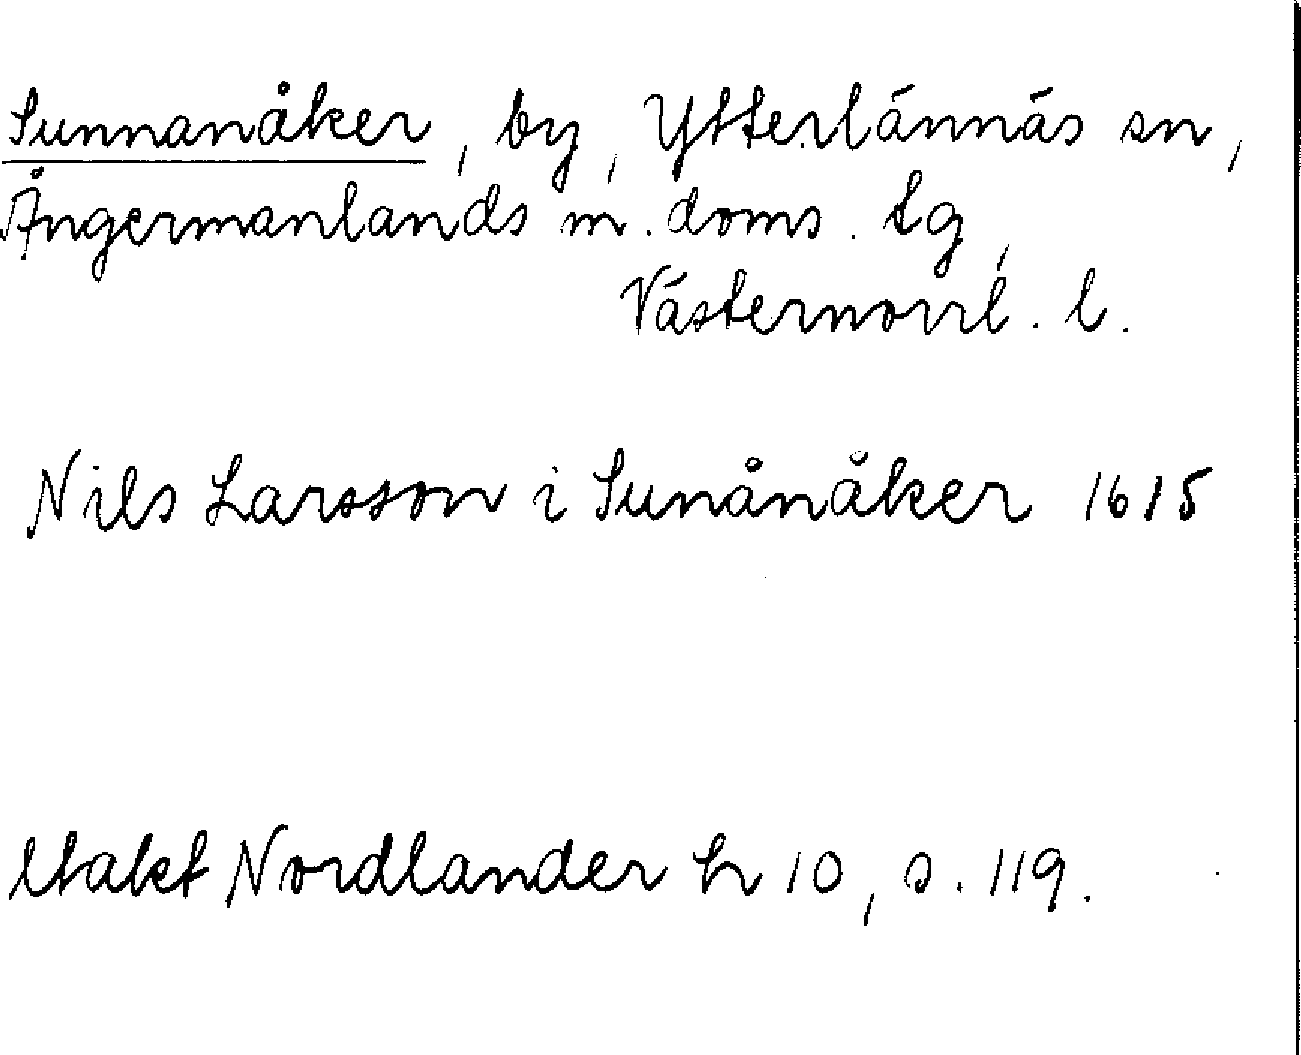 Sunnanåker, by, Ytterlännäs sn,
Ångermanlands m. doms. tg,
Västernorrl. l.
Nils Larsson i Sunånåker 1615
Utakt Nordlander h 10, s. 119.